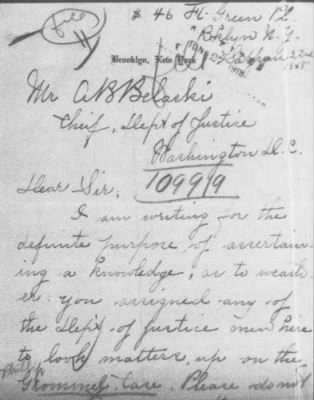 file
# 46 Ft. Green Pl.
Brklyn N.Y.
Brooklyn, New York
Mr A B Belaski
Chief, Dept of Justice
Washington D.C.
Dear Sir; 109919
I am writing for the
definite purpose of ascertain-
ing a knowledge, as to weath-
er you assigned any of
the Dept of Justice men here
to look matters up on the
Phillip
Grommel Case. Please do not